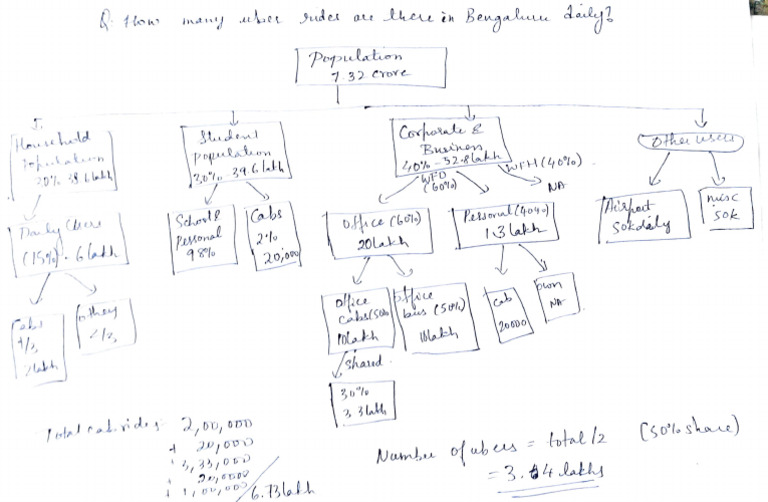 Q. How many uber rides are there in Bengaluru daily?
Population
1.32 crore
Household
Population
30% 39.6 lakh
Student
population
30% - 39.6 lakh
Corporate &
Business
40% - 52.8 lakh
Other users
WFO
(60%)
WFH (40%)
NA
Daily Users
(15%) - 6 lakh
School &
Personal
98%
Cabs
2%
20,000
Office (60%)
20 lakh
Personal (40%)
13 lakh
Airport
50k daily
misc
50k
Cabs
1/3
2 lakh
2/3
Office
cabs (50%)
10 lakh
office
bus (50%)
10 lakh
cab
20000
own
NA
shared
30%
3.3 lakh
Total cab rides 2,00,000
+ 20,000
+ 3,33,000
+ 20,000
+ 1,00,000
6.73 lakh
Number of ubers = total/2 (50% share)
= 3.4 lakhs